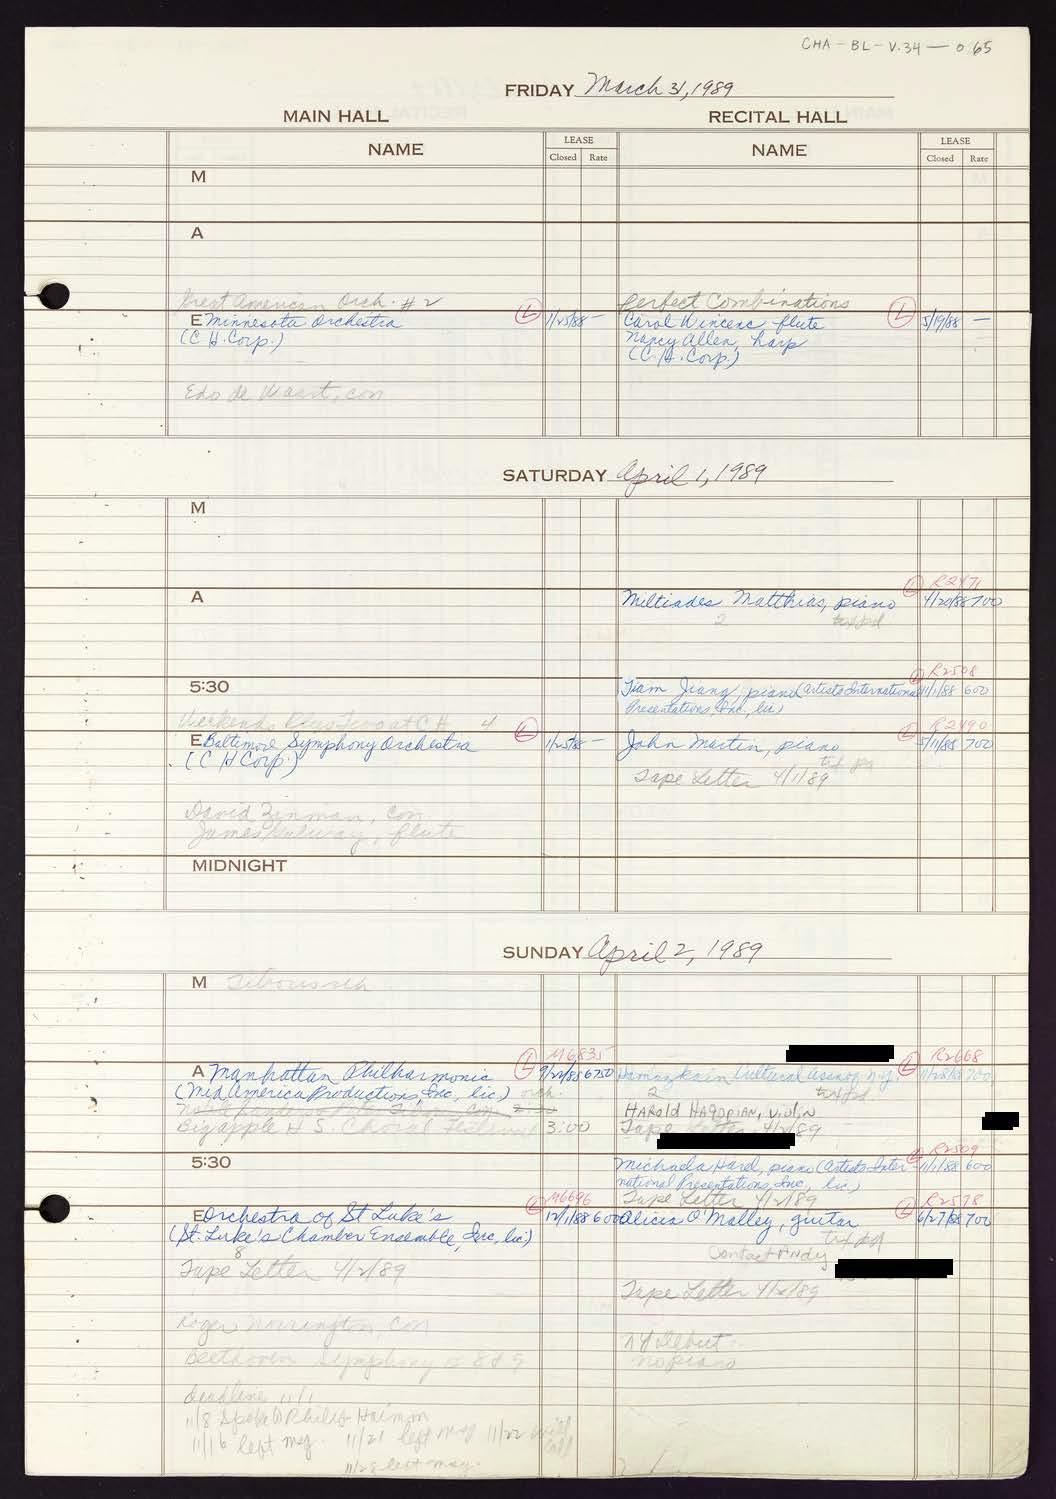 CHA-BL-V.34-065
FRIDAY March 31, 1989
MAIN HALL
RECITAL HALL
NAME
LEASE
Closed Rate
NAME
LEASE
Closed Rate
M
A
Great American Orch. #2
E Minnesota Orchestra L 1/25/88 -
(C.H. Corp.)
Edo de Waart, con
Perfect Combinations
Carol Wincenc flute L 5/19/88 -
Nancy Allen, harp
(C.H. Corp.)
SATURDAY April 1, 1989
M
A
L R2471
Miltiades Matthias, piano 4/20/88 700
2 txt pd
5:30
L R2508
Tiam Jiang, piano (Artists International 11/1/88 600
Presentations, Inc., lic.)
Weekends Plus Two at CH 4
E Baltimore Symphony Orchestra L 1/25/88 -
(C H Corp.)
David Zinman, con
James Galway, flute
L R2490
John Martin, piano 5/11/88 700
txt pd
Tape Letter 4/1/89
MIDNIGHT
SUNDAY April 2, 1989
M
L M6835
A Manhattan Philharmonic 9/22/88 6750
(MidAmerica Productions, Inc., lic.) orch.
Big apple H.S. Choral Festival 3:00
L R2668
Hamazkain Cultural Assn of N.Y. 700
2 txt pd.
HAROLD HAGOPIAN, VIOLIN
Tape Letter 4/2/89
5:30
L R2509
Michaela Harel, piano (Artists Inter- 11/1/88 600
national Presentations, Inc., lic.)
Tape Letter 4/2/89
L M6696
E Orchestra of St Luke's 12/1/88 600
(St. Luke's Chamber Ensemble, Inc, lic.)
8
Tape Letter 4/2/89
Roger Norrington, con
Beethoven Symphony # 8 & 9
deadline 11/1
11/8 Spoke W Philip
11/16 left msg. 11/21 left msg 11/22 will call
11/28 left msg.
L R2578
Alicia O'Malley, guitar 6/27/88 700
txt pd
Contact Andy
Tape Letter 4/2/89
NY Debut
no piano